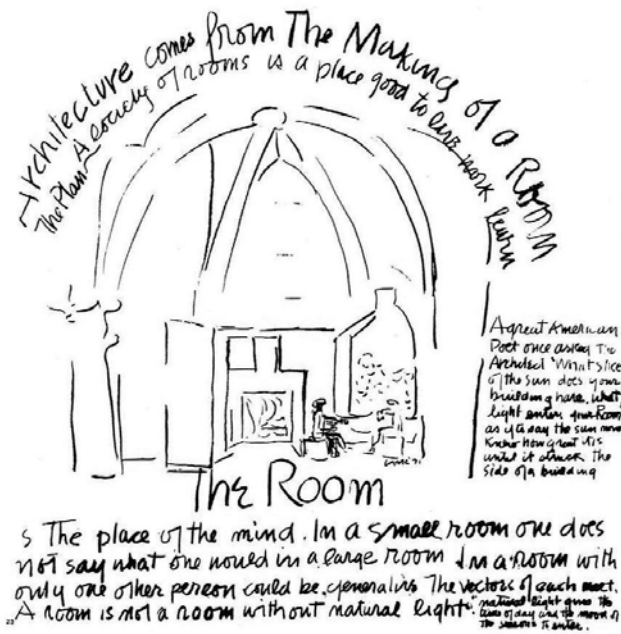 Architecture comes from The Making of a Room
The Plan A society of rooms is a place good to live work learn
A great American
Poet once asked the
Architect 'What slice
of the sun does your
building have, what
light enters your Room
as if to say the sun never
knew how great it is
until it struck the
side of a building
The Room
s The place of the mind. In a small room one does
not say what one would in a large room In a room with
only one other person could be generative The vectors of each meet.
A room is not a room without natural light
natural light gives the
time of day and the mood of
the seasons to enter.